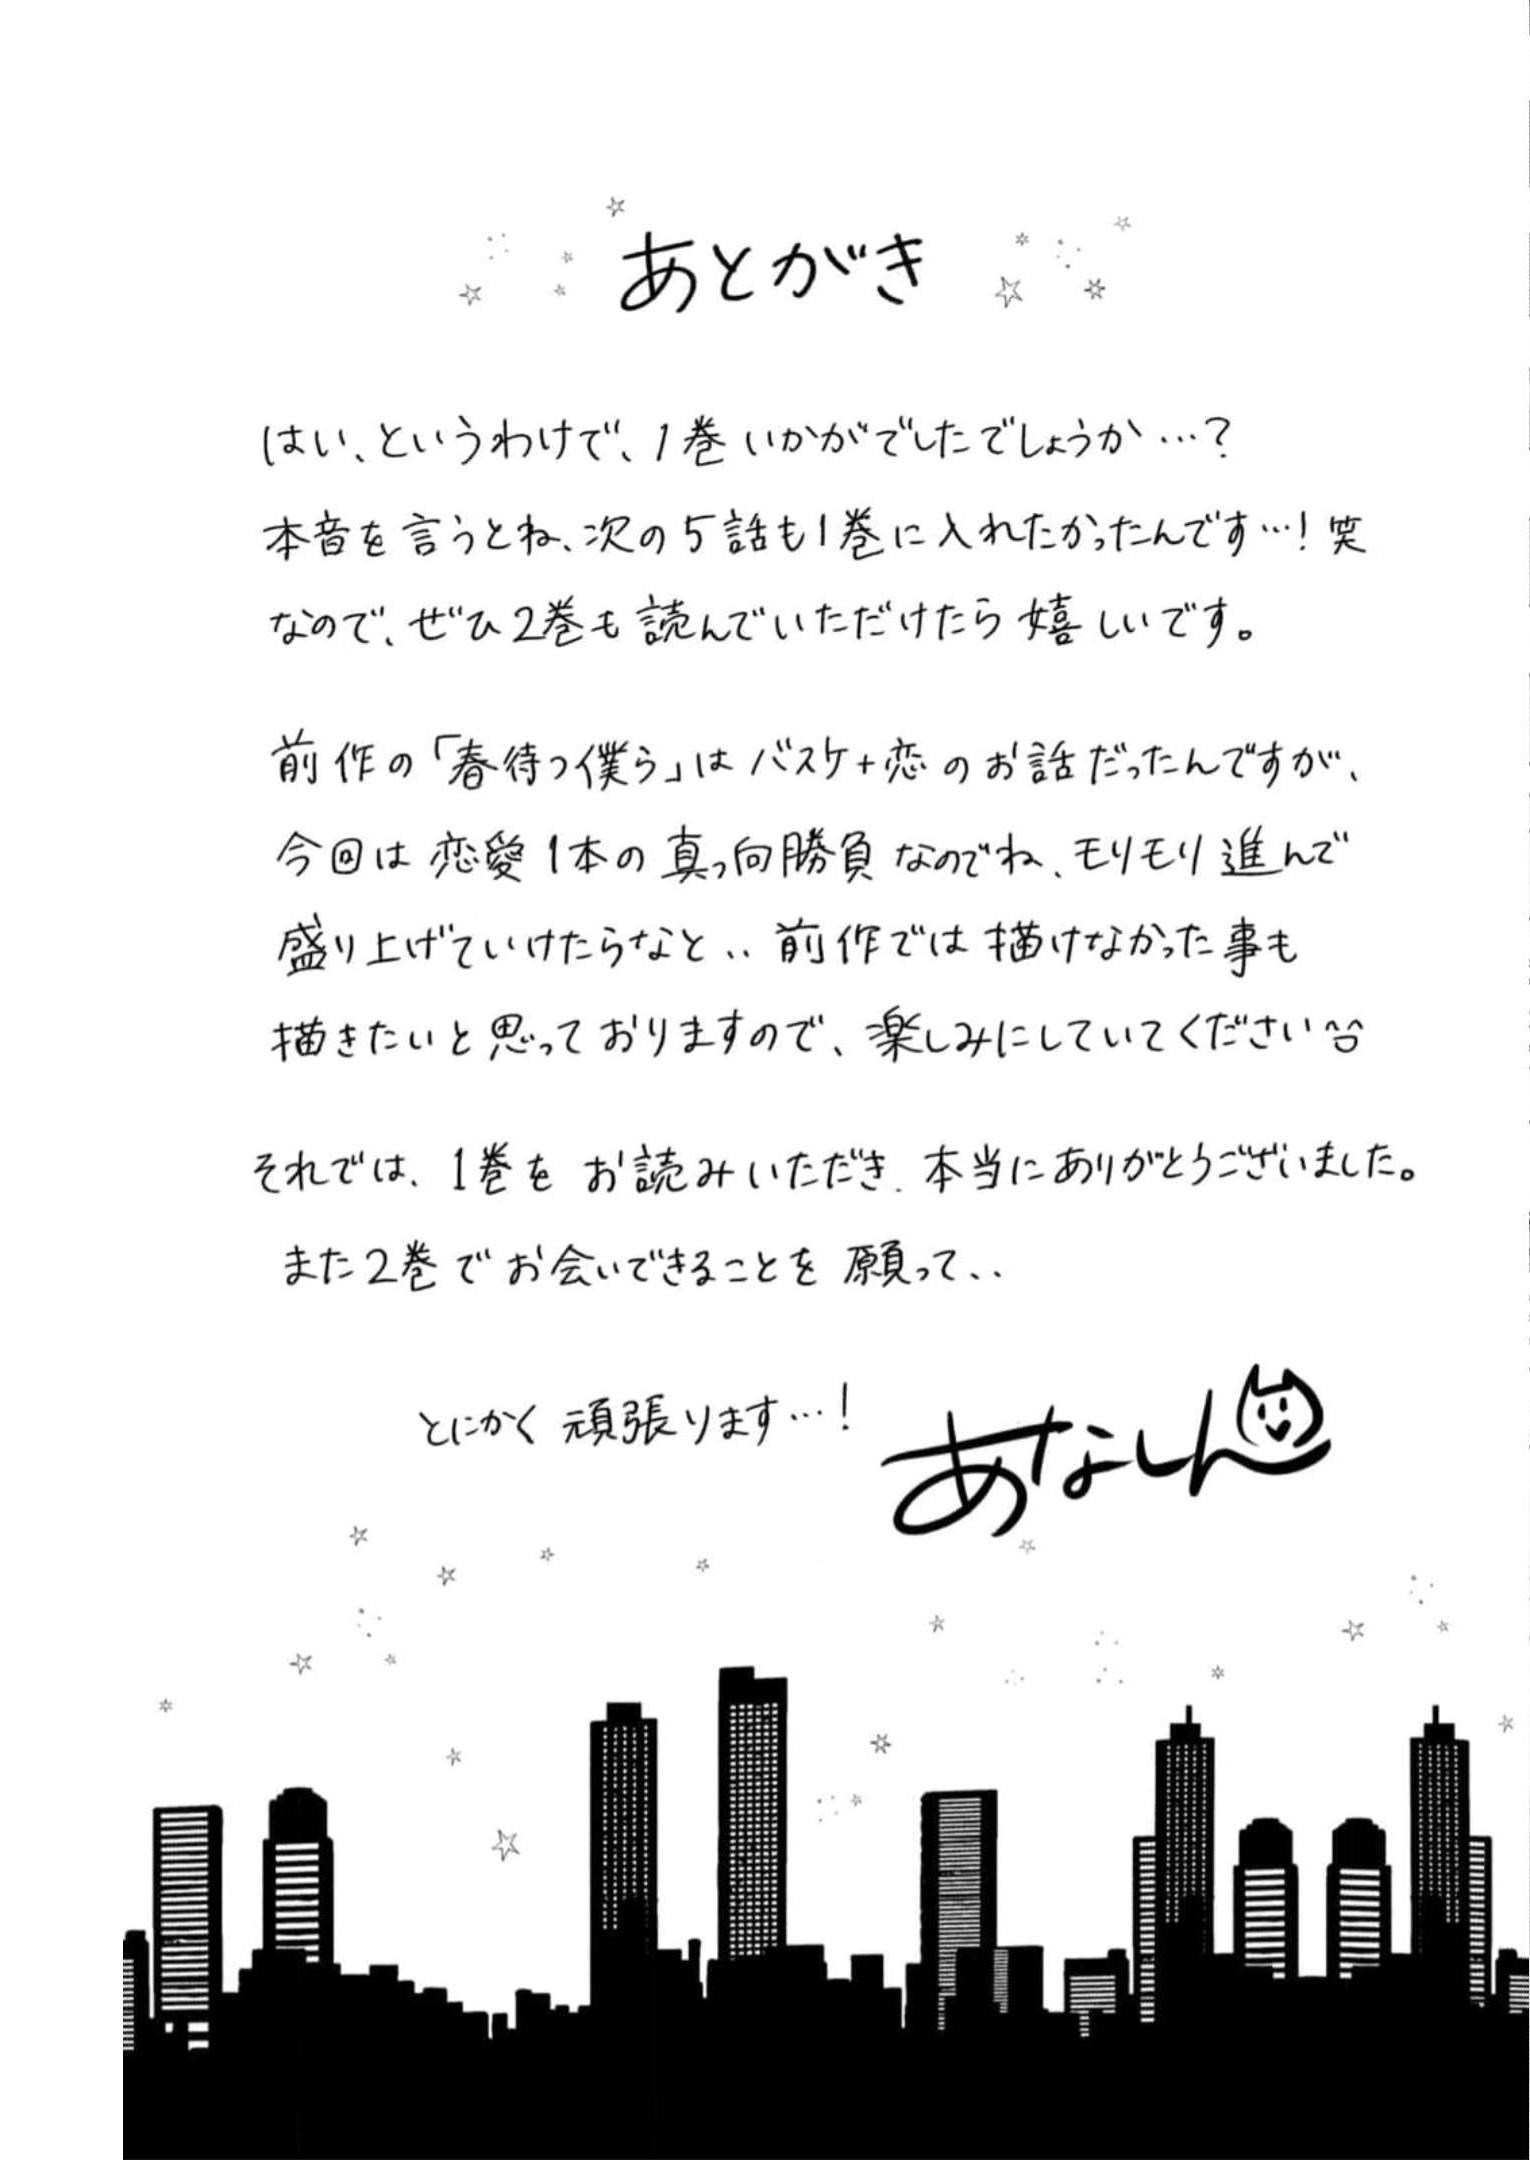 あとがき
はい、というわけで、1巻いかがでしたでしょうか…？
本音を言うとね、次の5話も1巻に入れたかったんです…！笑
なので、ぜひ2巻も読んでいただけたら嬉しいです。
前作の「春待つ僕ら」はバスケ+恋のお話だったんですが、
今回は恋愛1本の真っ向勝負なのでね、モリモリ進んで
盛り上げていけたらなと‥前作では描けなかった事も
描きたいと思っておりますので、楽しみにしていてください^^
それでは、1巻をお読みいただき、本当にありがとうございました。
また2巻でお会いできることを願って‥
とにかく頑張ります…！
あなしん